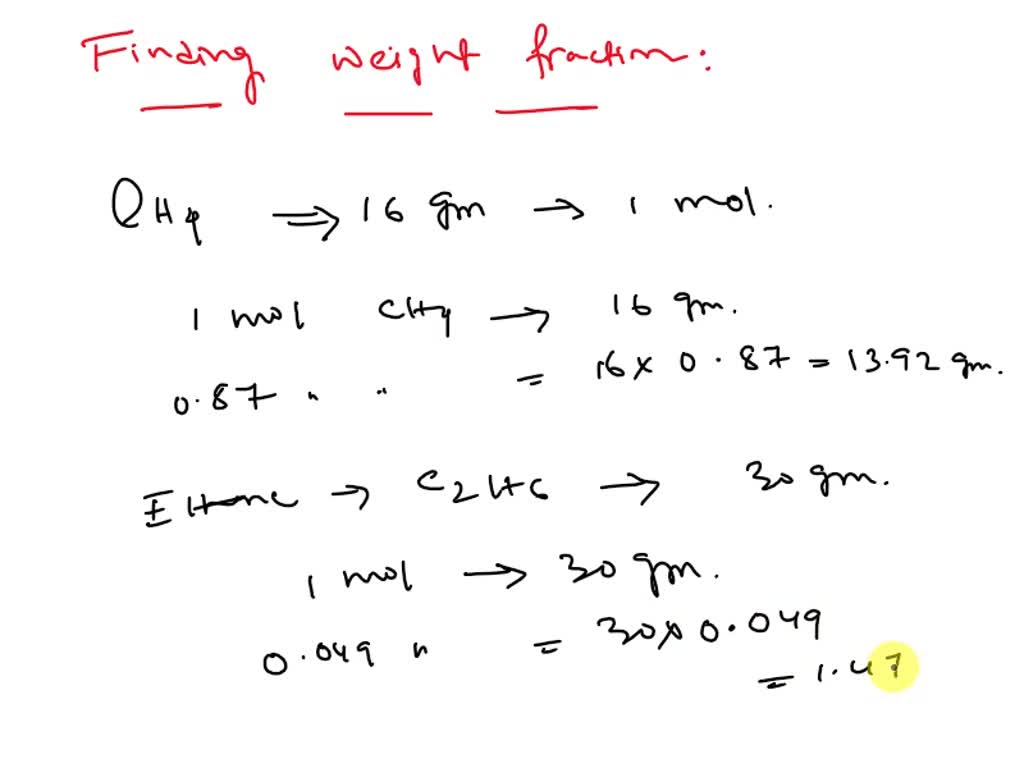 Finding weight fraction:
CH4 ⇒ 16 gm → 1 mol.
1 mol CH4 → 16 gm.
0.87 " " = 16 x 0.87 = 13.92 gm.
Ethane → C2H6 → 30 gm.
1 mol → 30 gm.
0.049 " = 30 x 0.049
= 1.47